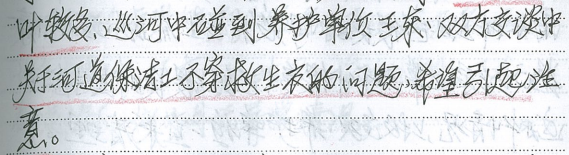 叶较多、巡河中碰到养护单位王东、双方交谈中
关于河道保洁工不穿救生衣的问题,希望引起注
意。